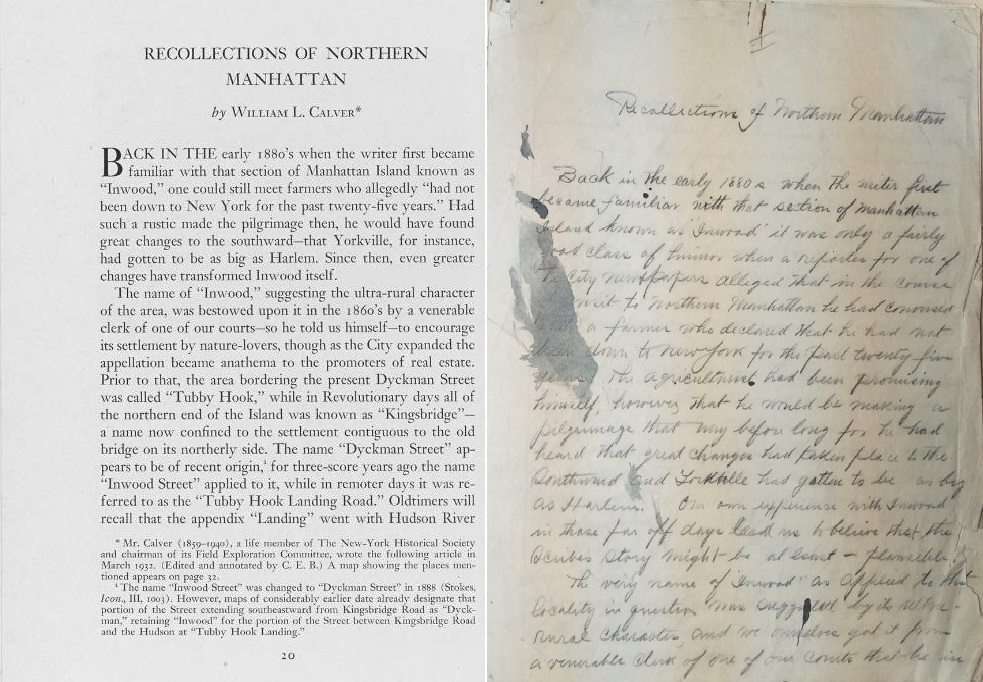 RECOLLECTIONS OF NORTHERN
MANHATTAN
by WILLIAM L. CALVER*
BACK IN THE early 1880's when the writer first became
familiar with that section of Manhattan Island known as
“Inwood,” one could still meet farmers who allegedly “had not
been down to New York for the past twenty-five years.” Had
such a rustic made the pilgrimage then, he would have found
great changes to the southward—that Yorkville, for instance,
had gotten to be as big as Harlem. Since then, even greater
changes have transformed Inwood itself.
The name of “Inwood,” suggesting the ultra-rural character
of the area, was bestowed upon it in the 1860's by a venerable
clerk of one of our courts—so he told us himself—to encourage
its settlement by nature-lovers, though as the City expanded the
appellation became anathema to the promoters of real estate.
Prior to that, the area bordering the present Dyckman Street
was called “Tubby Hook,” while in Revolutionary days all of
the northern end of the Island was known as “Kingsbridge”—
a name now confined to the settlement contiguous to the old
bridge on its northerly side. The name “Dyckman Street” ap-
pears to be of recent origin,¹ for three-score years ago the name
“Inwood Street” applied to it, while in remoter days it was re-
ferred to as the “Tubby Hook Landing Road.” Oldtimers will
recall that the appendix “Landing” went with Hudson River
* Mr. Calver (1859-1940), a life member of The New-York Historical Society
and chairman of its Field Exploration Committee, wrote the following article in
March 1932. (Edited and annotated by C. E. B.) A map showing the places men-
tioned appears on page 32.
¹ The name “Inwood Street” was changed to “Dyckman Street” in 1888 (Stokes,
Icon., III, 1003). However, maps of considerably earlier date already designate that
portion of the Street extending southeastward from Kingsbridge Road as “Dyck-
man,” retaining “Inwood” for the portion of the Street between Kingsbridge Road
and the Hudson at “Tubby Hook Landing.”
20
Recollections of Northern Manhattan
Back in the early 1880s when the writer first
became familiar with that section of Manhattan
Island known as "Inwood" it was only a fairly
class of humor when a reporter for one of
City newspapers alleged that in the course
visit to Northern Manhattan he had conversed
a farmer who declared that he had not
down to New York for the past twenty five
years. The agriculturist had been promising
himself, however, that he would be making a
pilgrimage that way before long for he had
heard that great changes had taken place to the
Southward and Yorkville had gotten to be as big
as Harlem. Our own experience with Inwood
in those far off days lead us to believe that the
Scribes story might be at least - plausible.
The very name of "Inwood" as applied to that
locality in question was suggested by its ultra-
rural character, and we ourselves got it from
a venerable clerk of one of our courts that he in